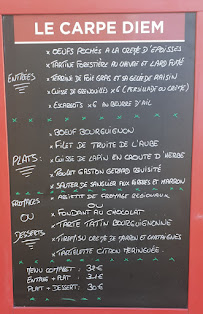 LE CARPE DIEM
x OEUFS POCHÉS A LA CREME D'EPOISSES
x TARTINE FORESTIÈRE AU CHEVRE ET LARD FUMÉ
ENTRÉES
x TERRINE DE FOIE GRAS ET SA GELÉE DE RAISIN
x CUISSE DE GRENOUILLES x6 (PERSILLADE OU CREME)
x ESCARGOTS x6 AU BEURRE D'AIL
x BOEUF BOURGUIGNON
x FILET DE TRUITE DE L'AUBE
PLATS:
x CUISSE DE LAPIN EN CROUTE D'HERBE
x POULET GASTON GERARD REVISITÉ
x SAUTER DE SANGLIER AUX AIRELLES ET MARRON
FROMAGES
x ASSIETTE DE FROMAGE REGIONAUX
OU
OU
x FONDANT AU CHOCOLAT
x TARTE TATIN BOURGUIGNONNE
DESSERTS
x TIRAMISU CREME DE MARRON ET CHATAIGNES
x TARTELETTE CITRON MERINGUÉE
MENU COMPLET: 38€
ENTRÉE + PLAT: 34€
PLAT + DESSERT: 30€